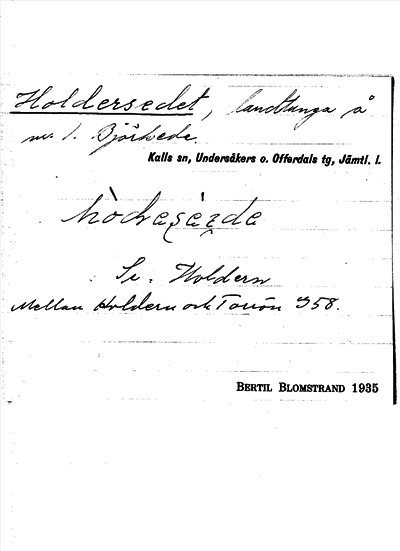 Holdersedet, landtunga å
nr. 1. Björkede.
Kalls sn, Undersåkers o. Offerdals tg, Jämtl. l.
Se. Holdern
Mellan Holdern och Torrön 958.
BERTIL BLOMSTRAND 1935